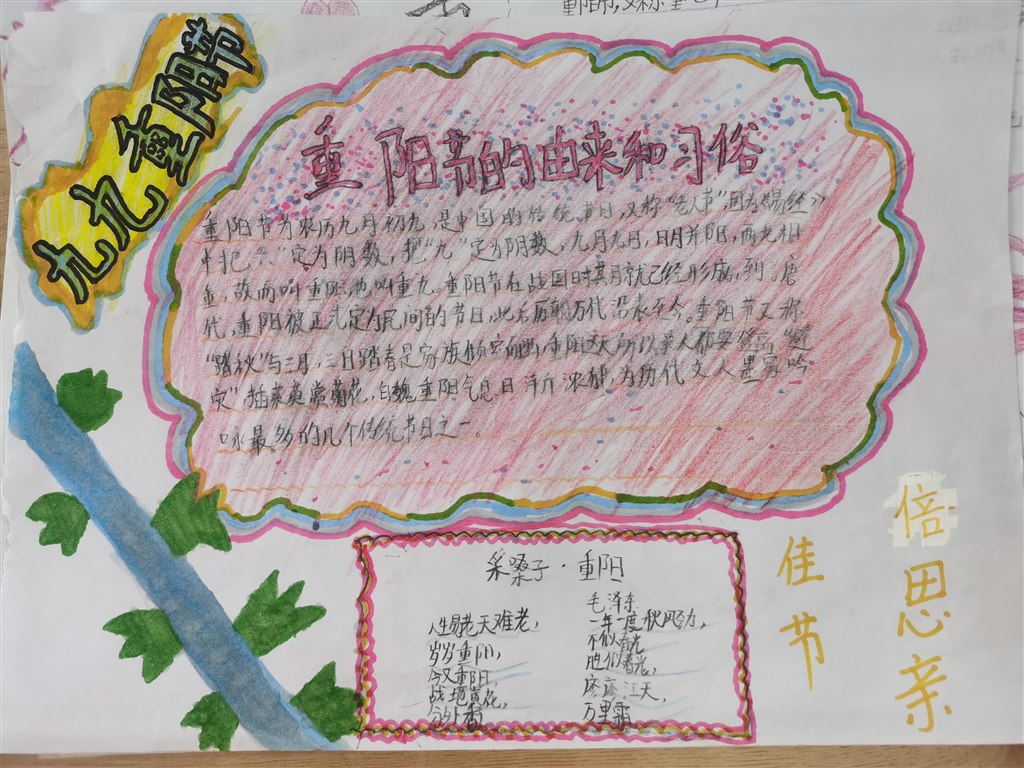 九九重阳节
重阳节的由来和习俗
重阳节为农历九月初九,是中国的传统节日,又称“老人节”因为《易经》
中把“六”定为阴数,把“九”定为阴数,九月九日,日月并阳,两九相
重,故而叫重阳,也叫重九。重阳节在战国时期就已经形成,到唐
代,重阳被正式定为民间的节日,此后历朝历代沿袭至今。重阳节又称
“踏秋”与三月三日踏春是家族倾室而出,重阳这天所以亲人都要登高“避
灾”插茱萸赏菊花,自魏重阳气息日渐浓郁,为历代文人墨客吟
咏最多的几个传统节日之一。
采嗓子·重阳
毛泽东
人生易老天难老,
岁岁重阳,
今又重阳,
战地黄花,
分外香
一年一度秋风劲,
不似春光
胜似春光,
寥廓江天,
万里霜
佳节
倍思亲